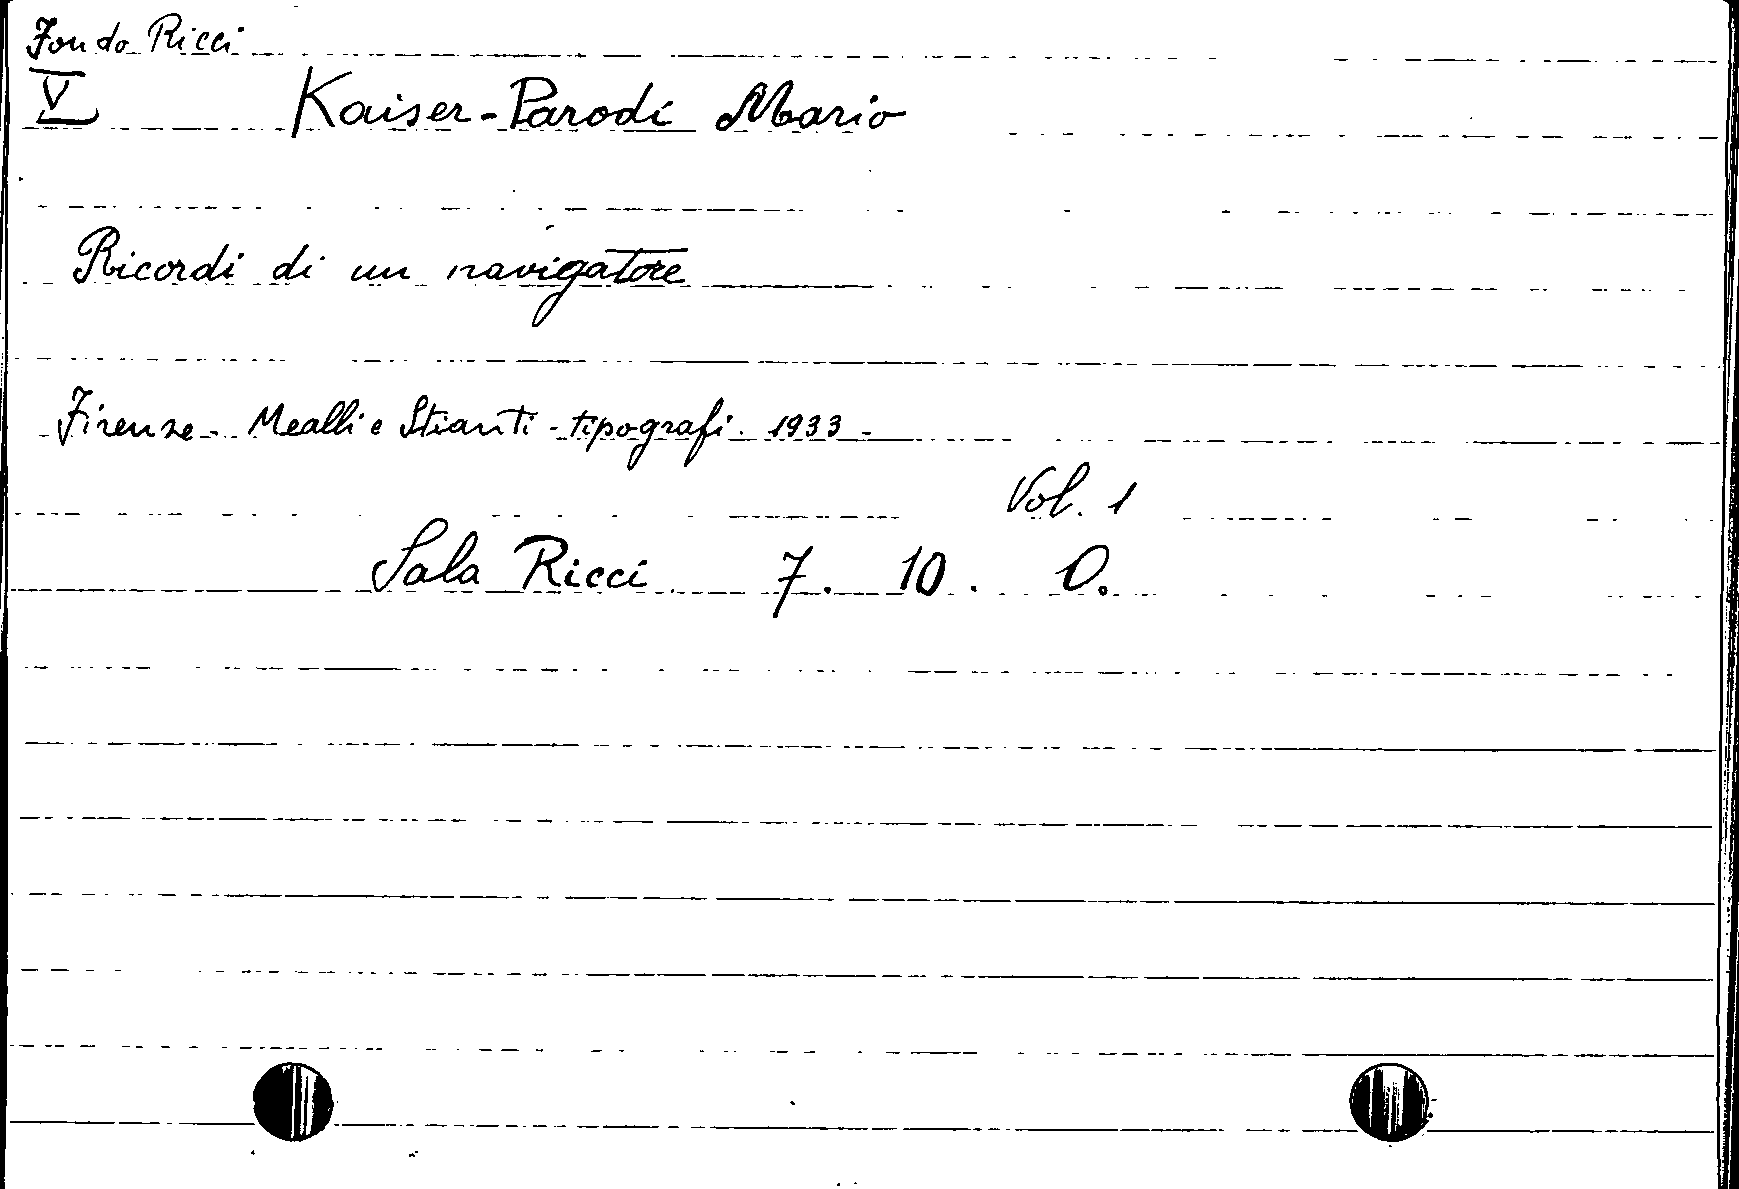 Fondo Ricci
V Kaiser-Parodi Mario
Ricordi di un navigatore
Firenze - Mealli e Stianti - tipografi. 1933 -
Vol. 1
Sala Ricci 7. 10. O.